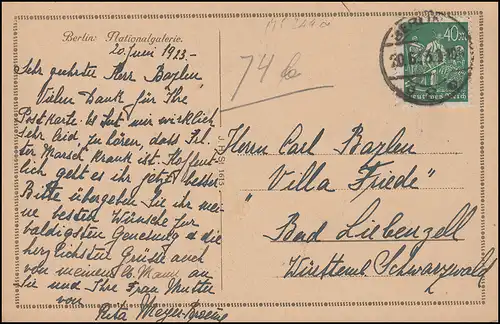 Berlin: Nationalgalerie.
20. Juni 1923 -
Sehr geehrter Herr Bazlen,
Vielen Dank für Ihre
Postkarte. Es tut mir wirklich
sehr leid zu hören, dass Frl.
ter Marsch krank ist. Hoffent-
lich geht es ihr jetzt besser
Bitte übergeben Sie ihr mei-
ne besten Wünsche zur
baldigsten Genesung & die
herzlichsten Grüsse auch
von meinem lb. Mann an
Sie und Ihre Frau Mutter
von
Rita Meyer
74 b
BERLIN
40 M
Deutsches Reich
Herrn Carl Bazlen
"Villa Friede"
Bad Liebenzell
Württemb. Schwarzwald